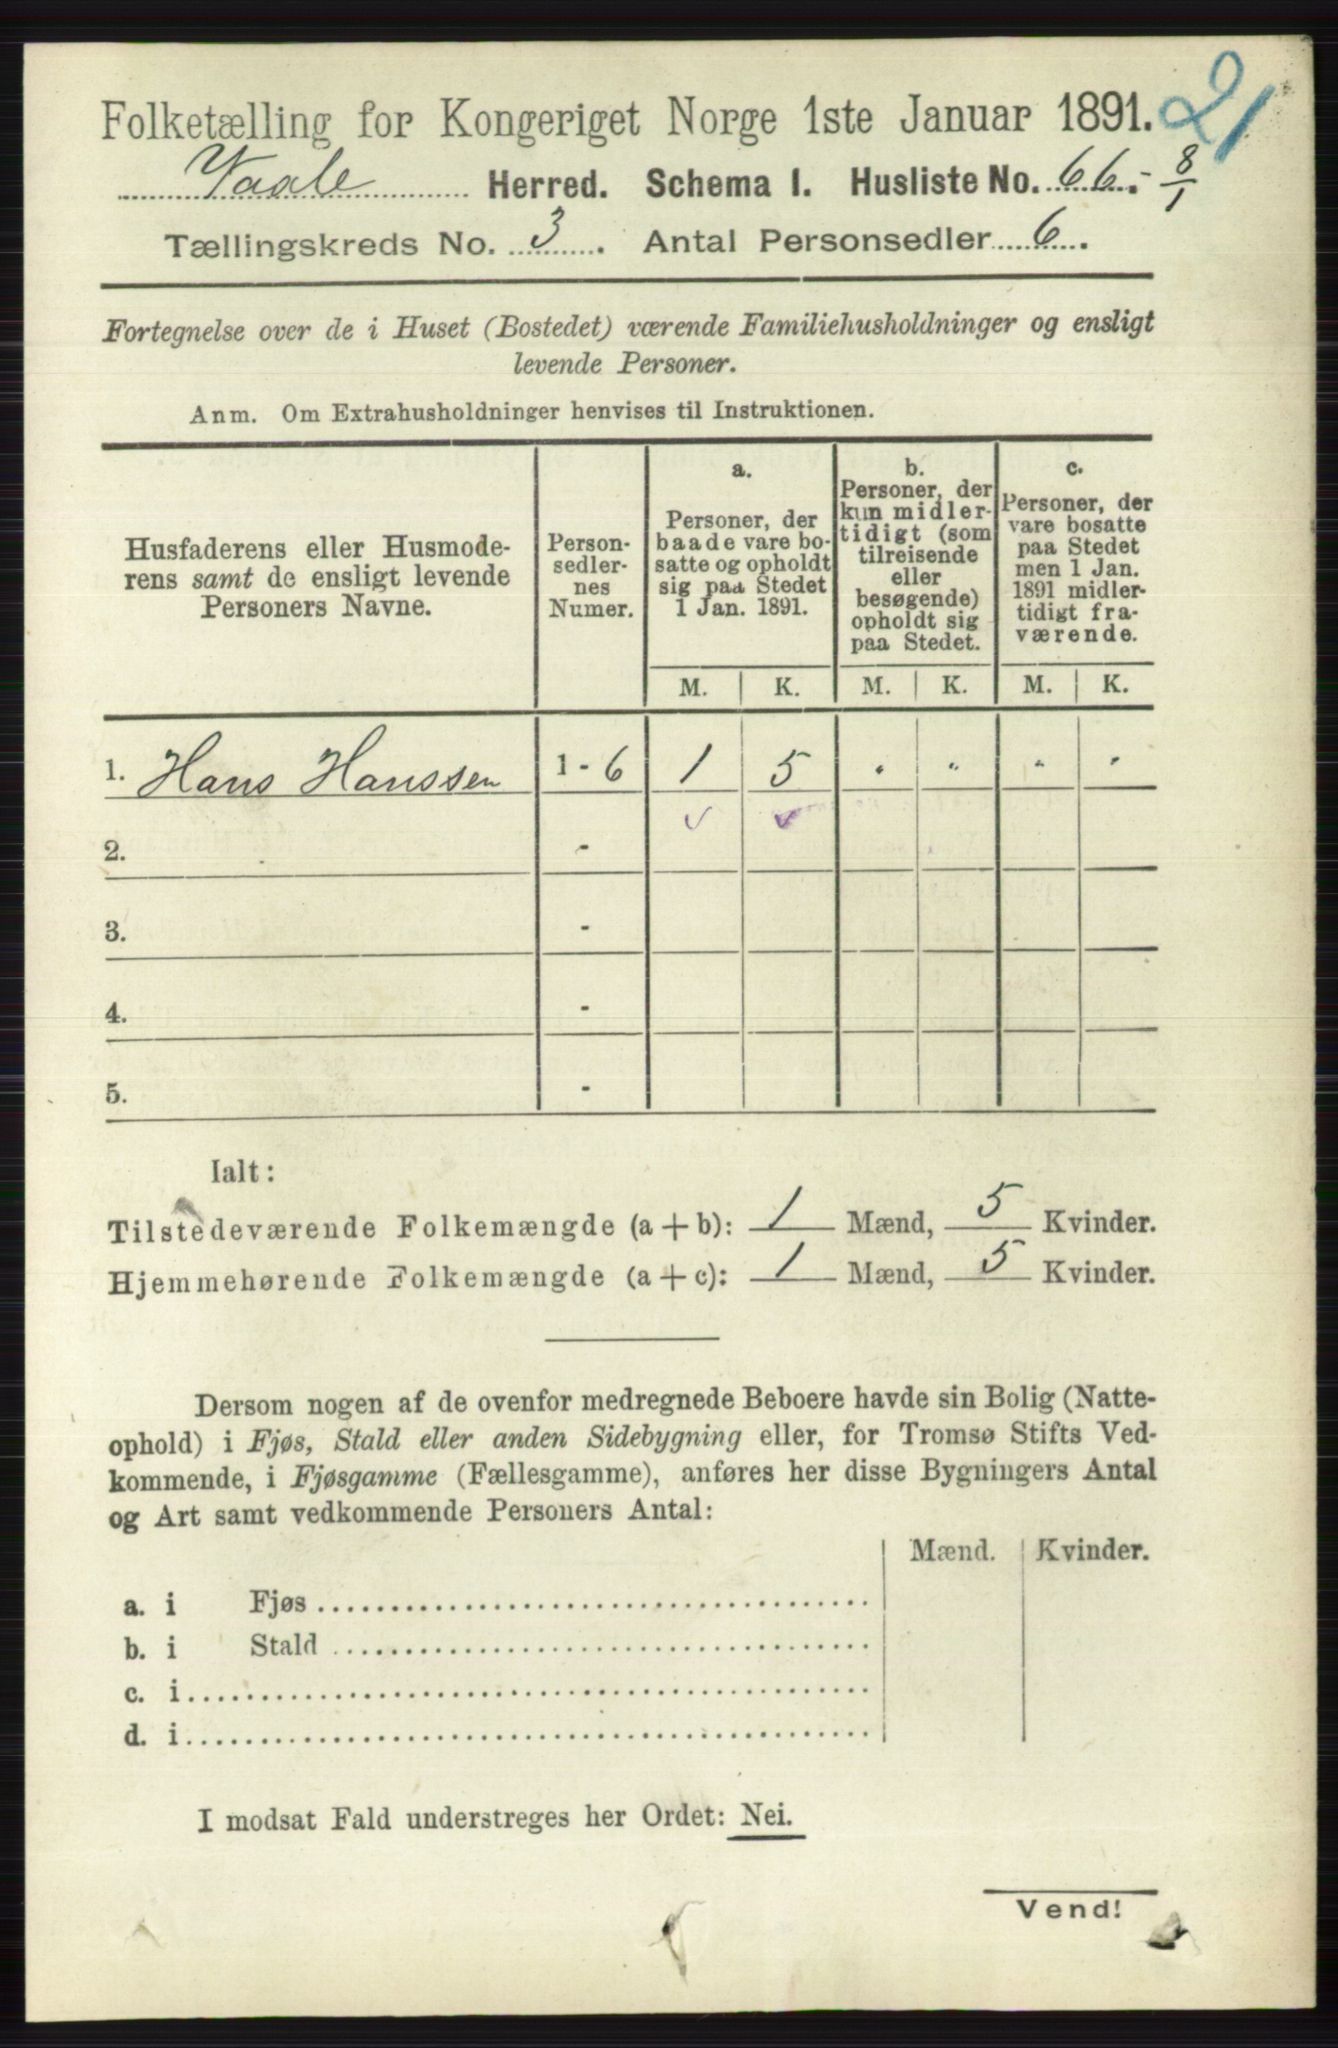 21
Folketælling for Kongeriget Norge 1ste Januar 1891.
Vaale Herred. Schema I. Husliste No. 66.- 8/1
Tællingskreds No. 3. Antal Personsedler 6.
Fortegnelse over de i Huset (Bostedet) værende Familiehusholdninger og ensligt
levende Personer.
Anm. Om Extrahusholdninger henvises til Instruktionen.
Husfaderens eller Husmode-
rens samt de ensligt levende
Personers Navne.
Person-
sedler-
nes
Numer.
a.
Personer, der
baade vare bo-
satte og opholdt
sig paa Stedet
1 Jan. 1891.
b.
Personer, der
kun midler-
tidigt (som
tilreisende
eller
besøgende)
opholdt sig
paa Stedet.
c.
Personer, der
vare bosatte
paa Stedet
men 1 Jan.
1891 midler-
tidigt fra-
værende.
M. K. M. K. M. K.
1. Hans Hanssen 1 - 6 1 5 " " " "
2. -
3. -
4. -
5. -
Ialt:
Tilstedeværende Folkemængde (a + b): 1 Mænd, 5 Kvinder.
Hjemmehørende Folkemængde (a + c): 1 Mænd, 5 Kvinder.
Dersom nogen af de ovenfor medregnede Beboere havde sin Bolig (Natte-
ophold) i Fjøs, Stald eller anden Sidebygning eller, for Tromsø Stifts Ved-
kommende, i Fjøsgamme (Fællesgamme), anføres her disse Bygningers Antal
og Art samt vedkommende Personers Antal:
Mænd. Kvinder.
a. i Fjøs
b. i Stald
c. i
d. i
I modsat Fald understreges her Ordet: Nei.
Vend!